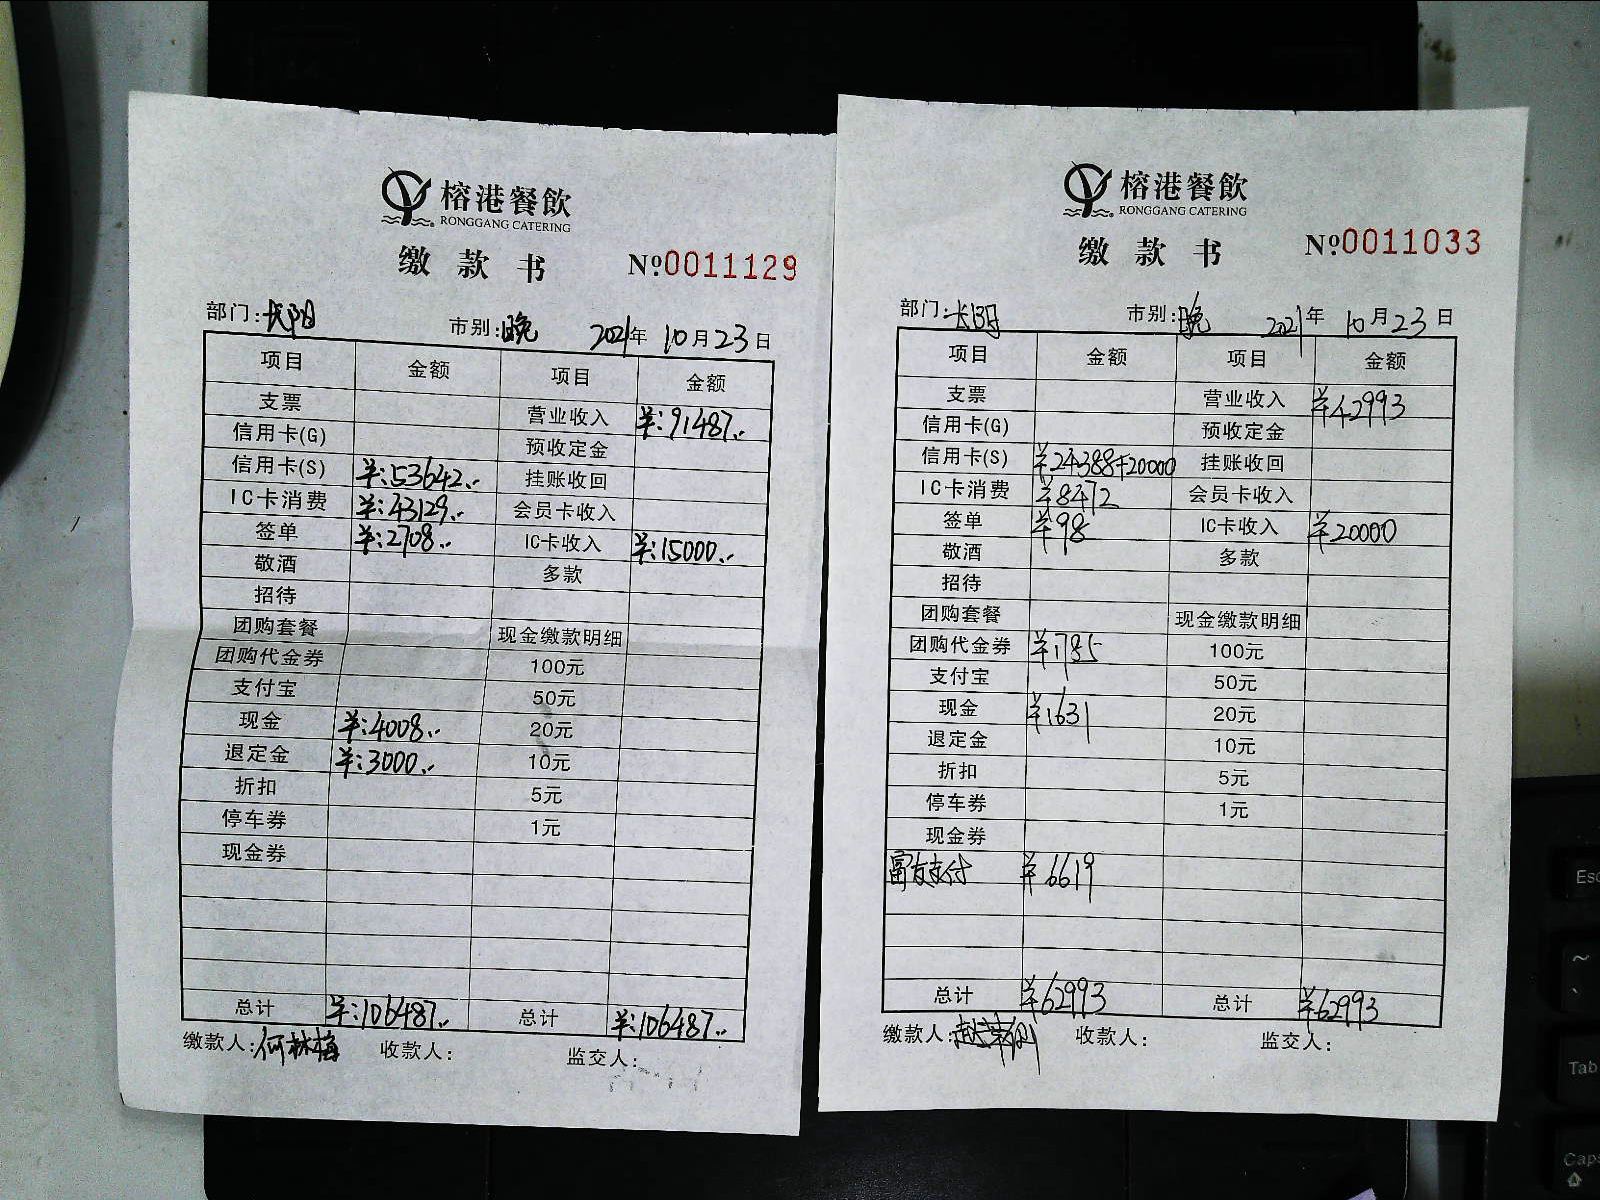 榕港餐飲
RONGGANG CATERING
缴款书 №0011129
部门:长阳 市别:晚 2021年10月23日
项目 金额 项目 金额
支票 营业收入 ¥:91487..
信用卡(G) 预收定金
信用卡(S) ¥:53642.. 挂账收回
IC卡消费 ¥:43129.. 会员卡收入
签单 ¥:2708.. IC卡收入 ¥:15000..
敬酒 多款
招待
团购套餐 现金缴款明细
团购代金券 100元
支付宝 50元
现金 ¥:4008.. 20元
退定金 ¥:3000.. 10元
折扣 5元
停车券 1元
现金券
总计 ¥:106487.. 总计 ¥:106487..
缴款人:何林梅 收款人: 监交人:
榕港餐飲
RONGGANG CATERING
缴款书 №0011033
部门:长阳 市别:晚 2021年10月23日
项目 金额 项目 金额
支票 营业收入 ¥42993
信用卡(G) 预收定金
信用卡(S) ¥24388+20000 挂账收回
IC卡消费 ¥8472 会员卡收入
签单 ¥98 IC卡收入 ¥20000
敬酒 多款
招待
团购套餐 现金缴款明细
团购代金券 ¥1785 100元
支付宝 50元
现金 ¥1631 20元
退定金 10元
折扣 5元
停车券 1元
现金券
富友支付 ¥6619
总计 ¥62993 总计 ¥62993
缴款人: 收款人: 监交人:
Esc
~
Tab
Caps